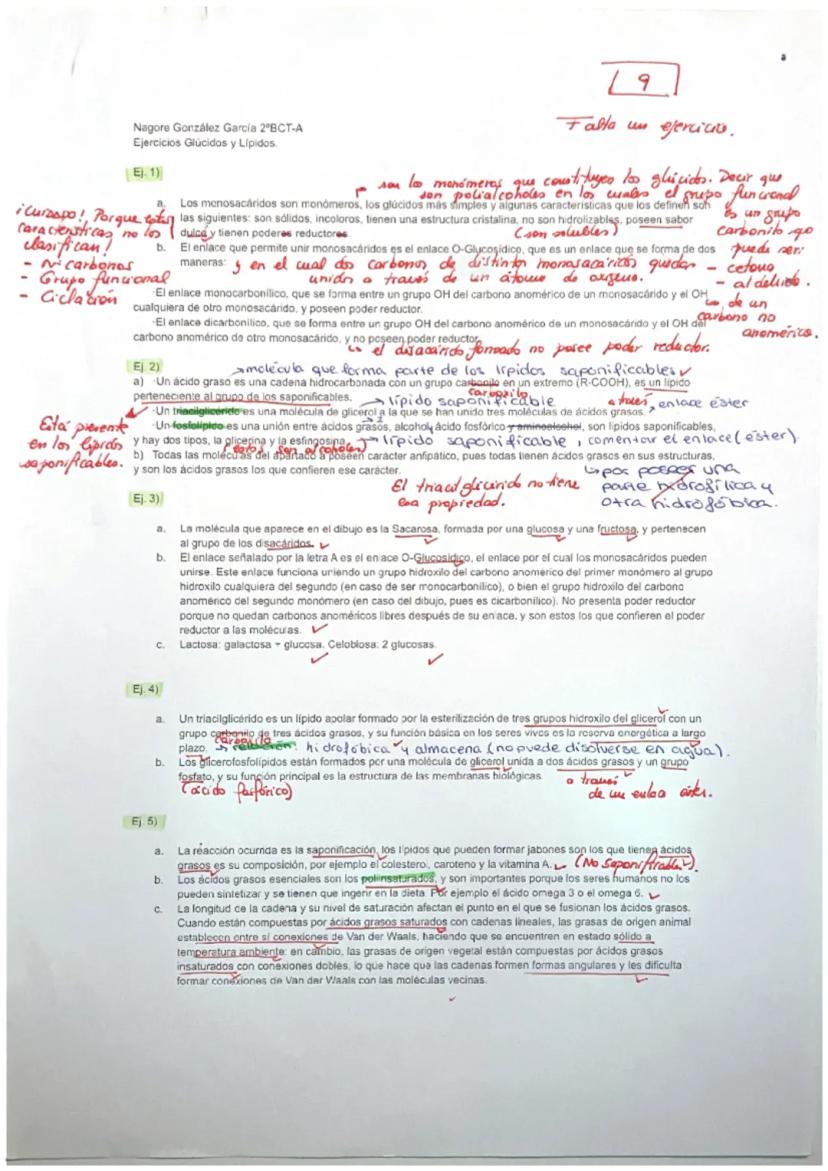 9
Falta un ejercicio.
Nagore González García 2ºBCT-A
Ejercicios Glúcidos y Lípidos.
Ej. 1)
son los monómeros que constituyen los glúcidos. Decir que
son polialcoholes en los cuales el grupo funcional
es un grupo
carbonilo que
puede ser:
- cetona
- aldehído.
a. Los monosacáridos son monómeros, los glúcidos más simples y algunas características que los definen son
las siguientes: son sólidos, incoloros, tienen una estructura cristalina, no son hidrolizables, poseen sabor
dulce y tienen poderes reductores.
(son solubles)
Porque estas
características no los
clasifican!
- Nº carbonos
- Grupo funcional
- Ciclación
b. El enlace que permite unir monosacáridos es el enlace O-Glycosídico, que es un enlace que se forma de dos
maneras:
y en el cual dos carbonos de distintos monosacáridos quedan
unidos a través de un átomo de oxígeno.
·El enlace monocarbonílico, que se forma entre un grupo OH del carbono anomérico de un monosacárido y el OH
cualquiera de otro monosacárido, y poseen poder reductor.
de un
carbono no
anomérico.
·El enlace dicarbonílico, que se forma entre un grupo OH del carbono anomérico de un monosacárido y el OH del
carbono anomérico de otro monosacárido, y no poseen poder reductor.
el disacárido formado no posee poder reductor.
Ej. 2)
molécula que forma parte de los lípidos saponificables
a) ·Un ácido graso es una cadena hidrocarbonada con un grupo carbonilo en un extremo (R-COOH), es un lípido
carboxilo
perteneciente al grupo de los saponificables.
lípido saponificable
a través enlace éster
·Un triacilglicérido es una molécula de glicerol a la que se han unido tres moléculas de ácidos grasos.
·Un fosfolípico es una unión entre ácidos grasos, alcohol, ácido fosfórico y aminoalcohol, son lípidos saponificables,
y hay dos tipos, la glicerina y la esfingosina.
(estos son alcoholes)
lípido saponificable, comentar el enlace (éster)
Está presente
en los lípidos
saponificables.
b) Todas las moléculas del apartado a poseen carácter anfipático, pues todas tienen ácidos grasos en sus estructuras,
y son los ácidos grasos los que confieren ese carácter.
por poseer una
parte hidrofílica y
otra hidrofóbica.
El triacilglicérido no tiene
esa propiedad.
Ej. 3)
a. La molécula que aparece en el dibujo es la Sacarosa, formada por una glucosa y una fructosa, y pertenecen
al grupo de los disacáridos.
b. El enlace señalado por la letra A es el enlace O-Glucosídico, el enlace por el cual los monosacáridos pueden
unirse. Este enlace funciona uniendo un grupo hidroxilo del carbono anomérico del primer monómero al grupo
hidroxilo cualquiera del segundo (en caso de ser monocarbonílico), o bien el grupo hidroxilo del carbono
anomérico del segundo monómero (en caso del dibujo, pues es dicarbonílico). No presenta poder reductor
porque no quedan carbonos anoméricos libres después de su enlace, y son estos los que confieren el poder
reductor a las moléculas.
c. Lactosa: galactosa + glucosa. Celobiosa: 2 glucosas.
Ej. 4)
a. Un triacilglicérido es un lípido apolar formado por la esterilización de tres grupos hidroxilo del glicerol con un
grupo carbonilo de tres ácidos grasos, y su función básica en los seres vivos es la reserva energética a largo
carboxilo
plazo.
hidrofóbica y almacena (no puede disolverse en agua).
b. Los glicerofosfolípidos están formados por una molécula de glicerol unida a dos ácidos grasos y un grupo
fosfato, y su función principal es la estructura de las membranas biológicas.
(ácido fosfórico)
a través
de un enlace éster.
Ej. 5)
a. La reacción ocurrida es la saponificación, los lípidos que pueden formar jabones son los que tienen ácidos
grasos es su composición, por ejemplo el colesterol, caroteno y la vitamina A.
(No Saponificable).
b. Los ácidos grasos esenciales son los poliinsaturados, y son importantes porque los seres humanos no los
pueden sintetizar y se tienen que ingerir en la dieta. Por ejemplo el ácido omega 3 o el omega 6.
c. La longitud de la cadena y su nivel de saturación afectan el punto en el que se fusionan los ácidos grasos.
Cuando están compuestas por ácidos grasos saturados con cadenas lineales, las grasas de origen animal
establecen entre sí conexiones de Van der Waals, haciendo que se encuentren en estado sólido a
temperatura ambiente; en cambio, las grasas de origen vegetal están compuestas por ácidos grasos
insaturados con conexiones dobles, lo que hace que las cadenas formen formas angulares y les dificulta
formar conexiones de Van der Waals con las moléculas vecinas.